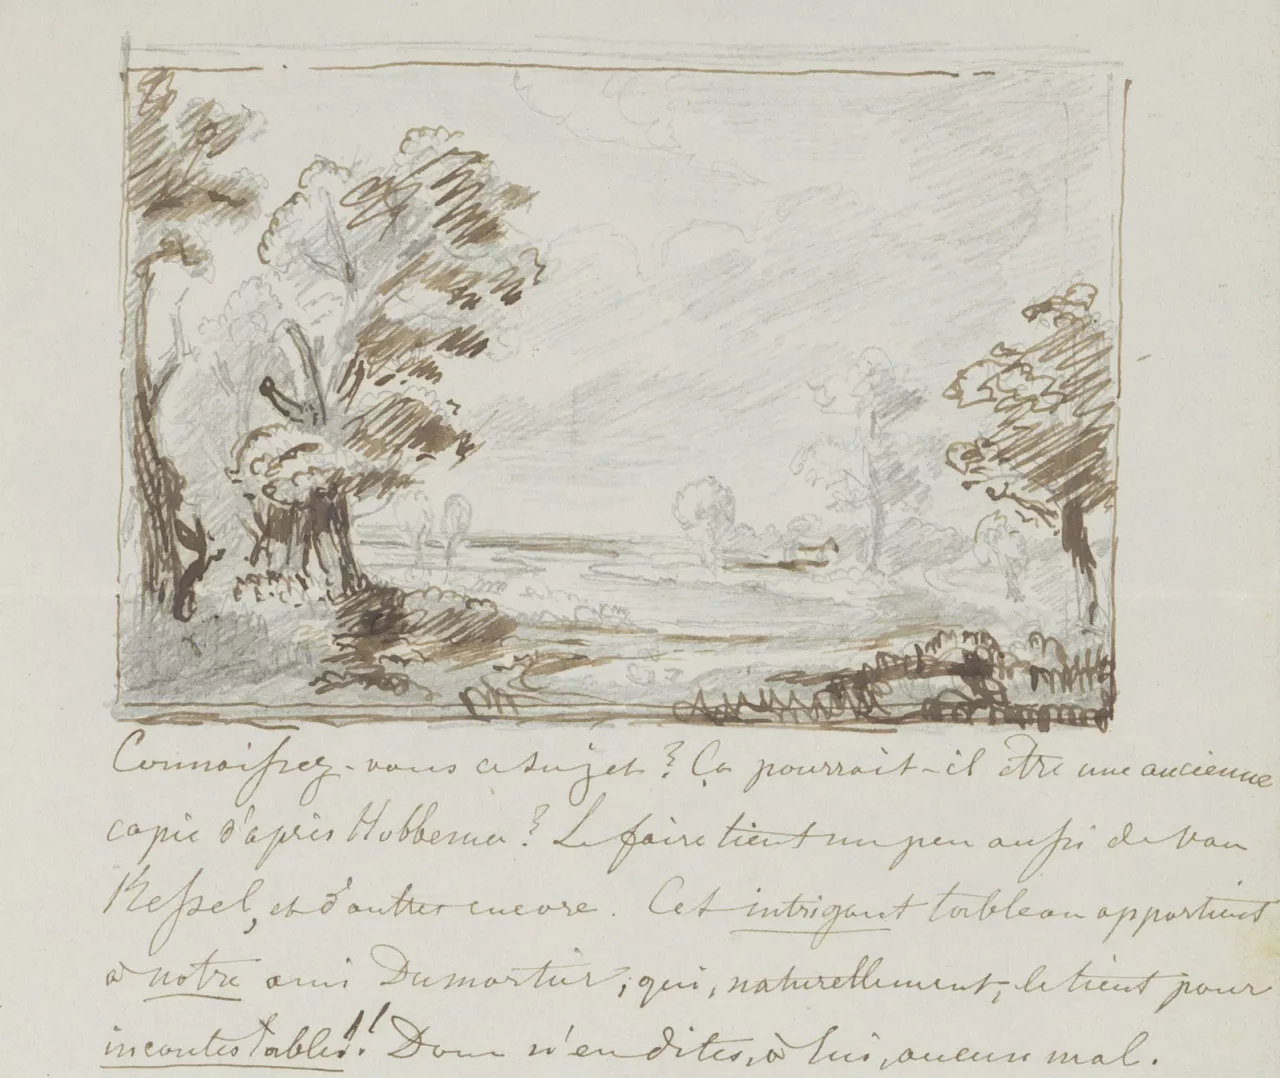 Connaissez-vous ce sujet? Ça pourrait-il être une ancienne
copie d'après Hobbema? Le faire tient un peu aussi de van
Kessel, et d'autres encore. Cet intrigant tableau appartient
à notre ami Dumortier; qui, naturellement, le tient pour
incontestable!! Donc n'en dites, à lui, aucun mal.